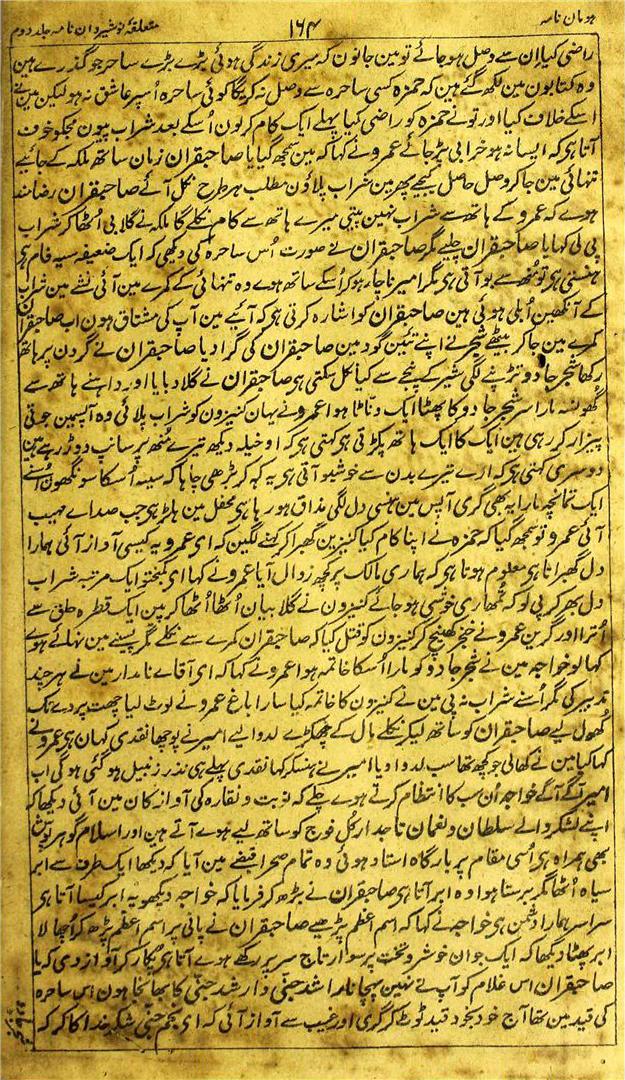 ہومان نامہ ۱۶۴ متعلقۂ نوشیروان نامہ جلد دوم
راضی کیا ان سے وصل ہو جائے تو مین جانون کہ میری زندگی ہوئی بڑے بڑے ساحر جو گذرے ہین
وہ کتابون مین لکھ گئے ہین کہ حمزہ کسی ساحرہ سے وصل نہ کریگا کوئی ساحرہ اُسپر عاشق نہ ہو لیکن مین نے
اسکے خلاف کیا اور تو نے حمزہ کو راضی کیا پہلے ایک کام کر لون اُسکے بعد شراب پیون مجکو خوف
آتا ہی کہ ایسا نہ ہو خرابی پڑ جائے عمرو نے کہا کہ مین سمجھ گیا یا صاحبقران زمان ساتھ ملکہ کے جائیے
تنہائی مین جا کر وصل حاصل کیجیے پھر مین شراب پلاؤن مطلب ہر طرح نکل آئے صاحبقران رضامند
ہوے کہ عمرو کے ہاتھ سے شراب نہین پیتی میرے ہاتھ سے کام نکلے گا ملکہ نے گلابی اُٹھا کر شراب
پی لی کہا یا صاحبقران چلیے مگر صاحبقران نے صورت اُس ساحرہ کی دیکھی کہ ایک ضعیفہ سیہ فام ہی
ہنستی ہی تو مُنھ سے بو آتی ہی مگر امیر ناچار ہو کر اُسکے ساتھ ہوے وہ تنہائی کے کمرے مین آئی نشے مین شراب
کے آنکھین اُبلی ہوئی ہین صاحبقران کو اشارہ کرتی ہی کہ آئیے مین آپ کی مشتاق ہون اب صاحبقران
کمرے مین جا کر بیٹھے شجر نے اپنے تئین گود مین صاحبقران کی گرا دیا صاحبقران نے گردن پر ہاتھ
رکھا شجر جادو تڑپنے لگی شیر کے پنجے سے کیا نکل سکتی ہی صاحبقران نے گلا دبایا اور داہنے ہاتھ سے
گھونسہ مارا سر شجر جادو کا پھٹا ایک دناٹا ہوا عمرو نے یہان کنیزون کو شراب پلائی وہ آپسمین جوتی
پیزار کر رہی ہین ایک کا ایک ہاتھ پکڑتی ہی کہتی ہی کہ او خیلہ دیکھ تیرے مُنھ پر سانپ دوڑ رہے ہین
دوسری کہتی ہی کہ ارے تیرے بدن سے خوشبو آتی ہی یہ کہہ کر بڑھی چاہا کہ سینہ اُسکا سونگھون اُسنے
ایک تمانچہ مارا یہ بھی گری آپس مین ہنسی دل لگی مذاق ہو رہا ہی محفل مین ہلڑ ہی جب صداے مہیب
آئی عمرو تو سمجھ گیا کہ حمزہ نے اپنا کام کیا کنیزین گھبرا کر کہنے لگین کہ ای عمرو یہ کیسی آواز آئی ہمارا
دل گھبراتا ہی معلوم ہوتا ہی کہ ہماری مالک پر کچھ زوال آیا عمرو نے کہا ای کمبختو ایک مرتبہ شراب
دل بھر کر پی لو کہ تمھاری خوشی ہو جائے کنیزون نے گلابیان اُٹھا اُٹھا کر پین ایک قطرہ حلق سے
اُترا اور گرین عمرو نے خنجر کھینچ کر کنیزون کو قتل کیا کہ صاحبقران کمرے سے نکلے مگر پسینے مین نہائے ہوے
کہا لو خواجہ مین نے شجر جادو کو مارا اُسکا خاتمہ ہوا عمرو نے کہا کہ ای آقاے نامدار مین نے ہر چند
تدبیر کی مگر اُسنے شراب نہ پی مین نے کنیزون کا خاتمہ کیا سارا باغ عمرو نے لوٹ لیا چھت پردے تک
کھول لیے صاحبقران کو ساتھ لیکر نکلے مال کے چھکڑے لدوائے امیر نے پوچھا نقدی کہان ہی عمرو نے
کہا کیا مین نے کھا لی جو کچھ تھا سب لدوا دیا امیر نے ہنسکر کہا نقدی پہلے ہی نذر زنبیل ہو گئی ہو گی اب
امیر آگے آگے خواجہ اُن سب کا انتظام کرتے ہوے چلے کہ نوبت و نقارہ کی آواز کان مین آئی دیکھا کہ
اپنے لشکر والے سلطان ولغمان تاجدار کل فوج کو ساتھ لیے ہوے آتے ہین اور اسلام گوہر پوش
بھی ہمراہ ہی اُسی مقام پر بارگاہ استاد ہوئی وہ تمام صحرا قبضے مین آیا کہ دیکھا ایک طرف سے ابر
سیاہ اُٹھا گر برستا ہوا وہ ابر آتا ہی صاحبقران نے بڑھ کر فرمایا کہ خواجہ دیکھو یہ ابر کیسا آتا ہی
سراسر ہمارا دشمن ہی خواجہ نے کہا کہ اسم اعظم پڑھیے صاحبقران نے پانی پر اسم اعظم پڑھ کر اُچھالا
ابر پھٹا دیکھا کہ ایک جوان خوشرو تخت پر سوار تاج سر پر رکھے ہوے آتا ہی پکار کر آواز دی کہ یا
صاحبقران اس غلام کو آپ نے نہین پہچانا راشد جنی وارشد جنی کا بھانجا ہون اس ساحرہ
کی قید مین تھا آج خود بخود قید ٹوٹ کر گری اور غیب سے آواز آئی کہ ای نجم جنی شکر خدا کا کر کہ